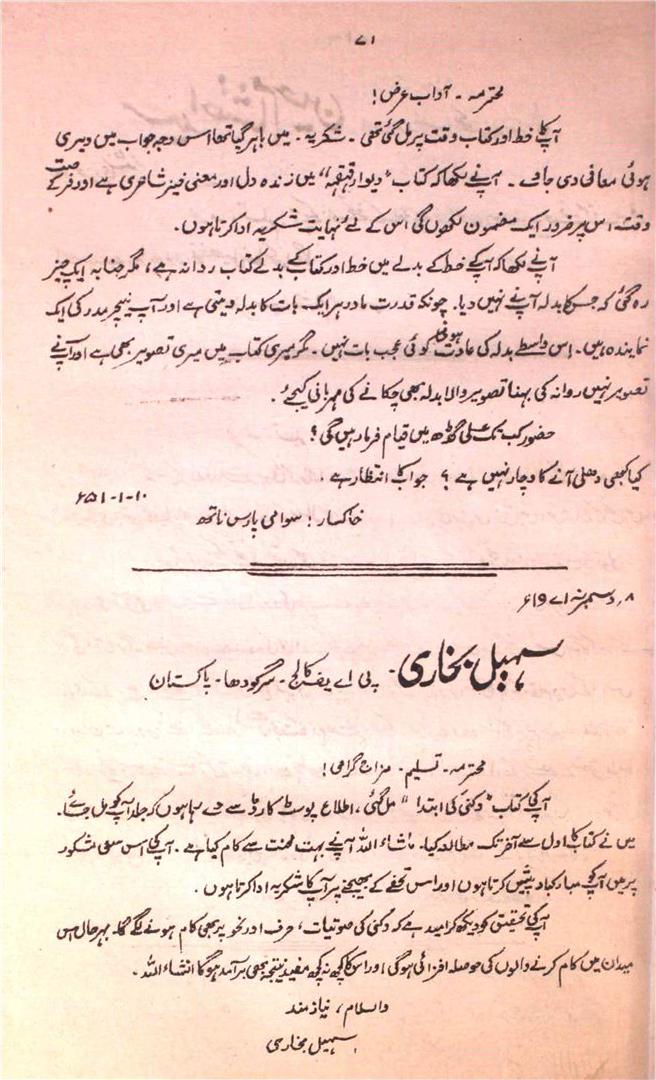 ۷۱
محترمہ ۔ آداب عرض !
آپکا خط اور کتاب وقت پر مل گئی تھی ۔ شکریہ ۔ میں باہر گیا تھا اس وجہ جواب میں دیری
ہوئی معافی دی جاوے ۔ آپنے لکھا کہ کتاب "دیوارِ قہقہہ" میں زندہ دل اور معنی خیز شاعری ہے اور فرصت کے
وقت اس پر ضرور ایک مضمون لکھوں گی اس کے لئے نہایت شکریہ ادا کرتا ہوں ۔
آپنے لکھا کہ آپکے خط کے بدلے میں خط اور کتاب کے بدلے کتاب روانہ ہے ، مگر جنابہ ایک چیز
رہ گئی کہ جس کا بدلہ آپنے نہیں دیا ۔ چونکہ قدرت مادر ہر ایک بات کا بدلہ دیتی ہے اور آپ نیچر مدر کی ایک
نمایندہ ہیں ۔ اِس واسطے بدلہ کی عادت ہونا کوئی عجب بات نہیں ۔ مگر میری کتاب میں میری تصویر بھی ہے اور آپنے
تصویر نہیں روانہ کی بہنا تصویر والا بدلہ بھی چکانے کی مہربانی کیجئے ۔
حضور کب تک علی گڑھ میں قیام فرما رہیں گی ؟
کیا کبھی دھلی آنے کا وچار نہیں ہے ؟ جواب کا انتظار ہے ۔
۱۰-۱-۵۱ء
خاکسار ! سوامی پارس ناتھ
۸ ر دسمبر سنہ ۱۹۷۱ء
سہیل بخاری ۔ پی اے یف کالج ۔ سرگودھا ۔ پاکستان
محترمہ ۔ تسلیم ۔ مزاج گرامی !
آپ کی کتاب "دکنی کی ابتدا" مل گئی ، اطلاع پوسٹ کارڈ سے دے رہا ہوں کہ جلد آپکو مل جائے ۔
میں نے کتاب کا اول سے آخر تک مطالعہ کیا ۔ ماشاء اللہ آپنے بہت محنت سے کام کیا ہے ۔ آپ کی اس سعی مشکور
پر میں آپکو مبارکباد پیش کرتا ہوں اور اس تحفے کے بھیجنے پر آپ کا شکریہ ادا کرتا ہوں ۔
آپ کی تحقیق کو دیکھ کر امید ہے کہ دکنی کی صوتیات ، حرف اور نحو پر بھی کام ہونے لگے گا ۔ بہر حال اس
میدان میں کام کرنے والوں کی حوصلہ افزائی ہوگی اور اس کا کچھ نہ کچھ مفید نتیجہ بھی برآمد ہوگا انشاء اللہ ۔
والسلام ، نیاز مند
سہیل بخاری